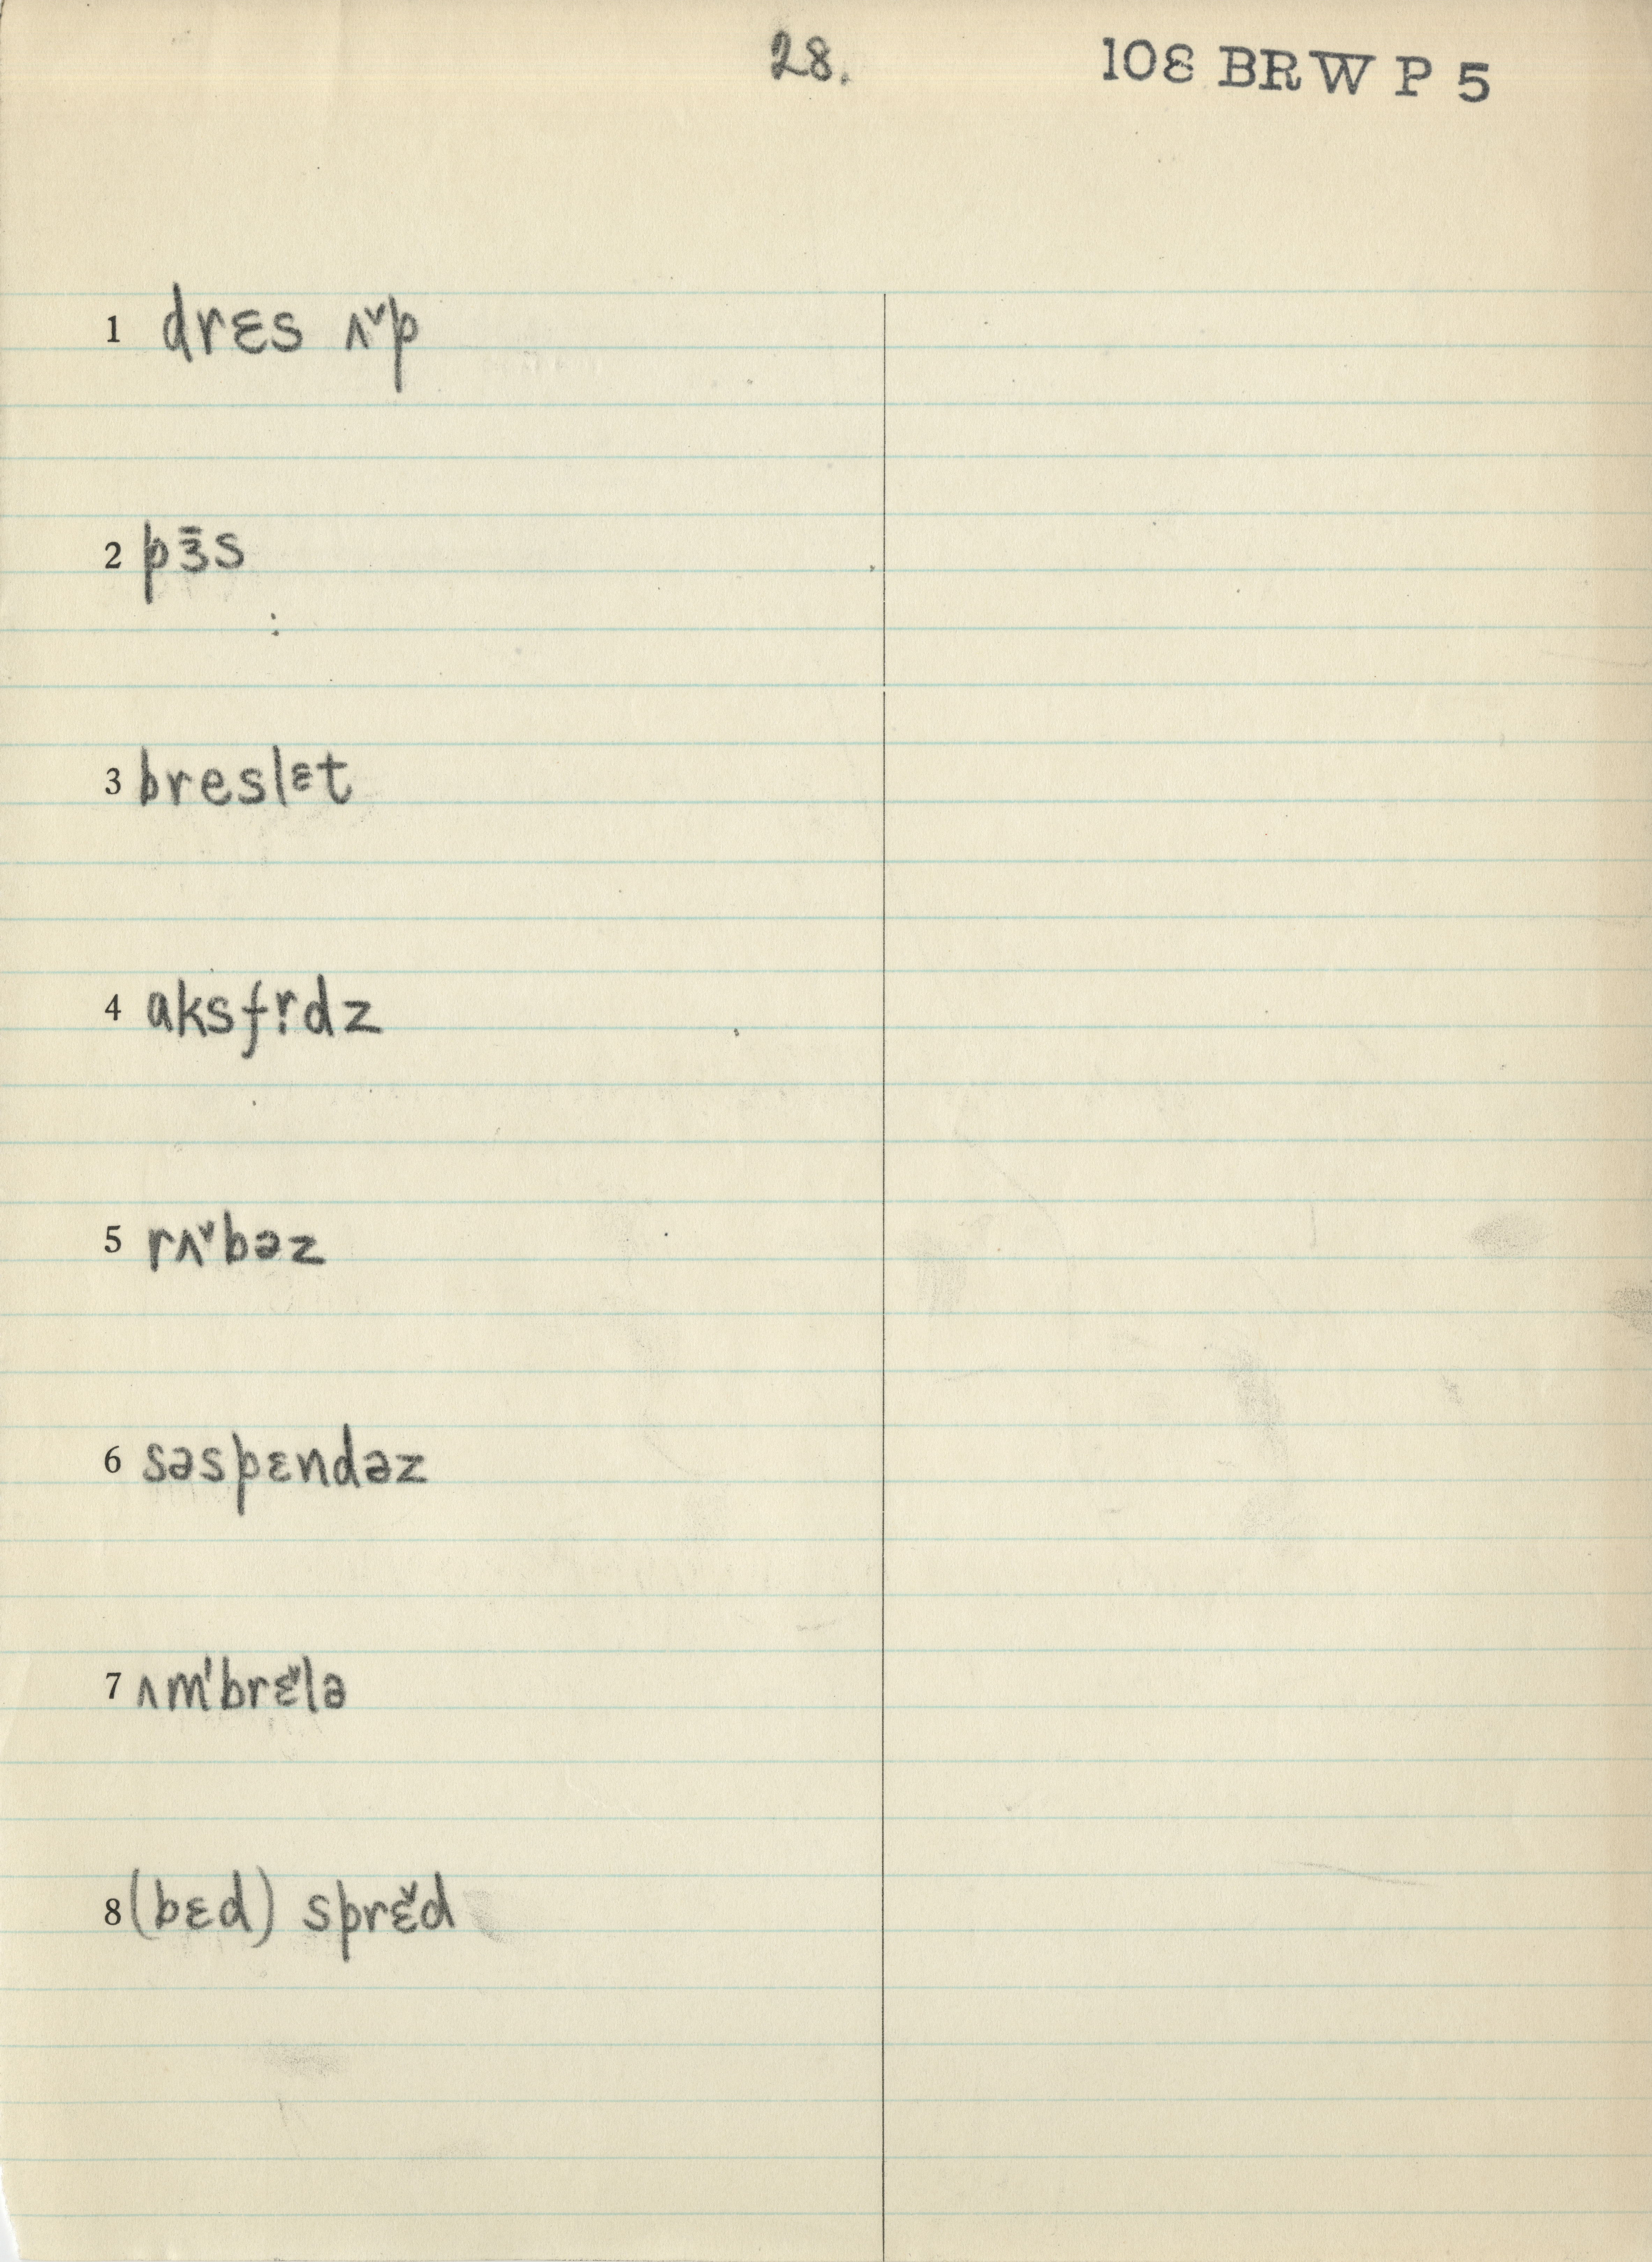 28. 108 BRW P 5
1 drɛs ʌ˅p
2 pɜ̄s
3 breslɛt
4 aksfr̩dz
5 rʌ˅bəz
6 səspɛndəz
7 ʌm'brɛ̌lə
8 (bɛd) sprɛ̌d